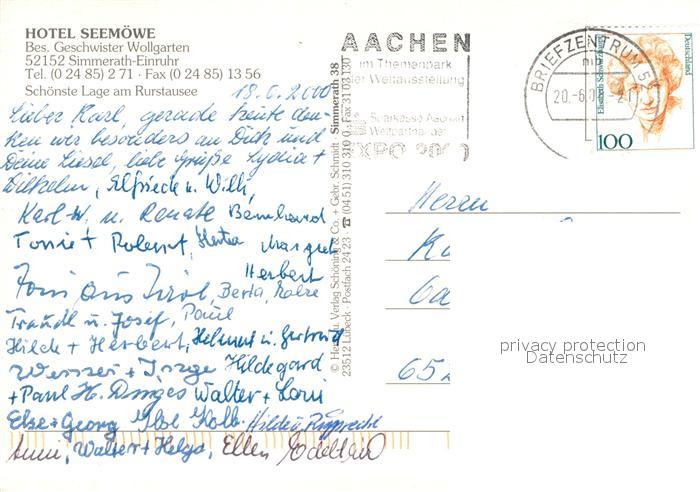 HOTEL SEEMÖWE
Bes. Geschwister Wollgarten
52152 Simmerath-Einruhr
Tel. (0 24 85) 2 71 · Fax (0 24 85) 13 56
Schönste Lage am Rurstausee
18.6.2000
Lieber Karl, gerade heute den-
ken wir besonders an Dich und
Deine Liesel, liebe Grüße Lydia +
Wilhelm, Elfriede u. Willi,
Karl-W. u. Renate Bernhard
Tonie + Robert, Herta Margret
Herbert
Toni aus Tirol, Berta,
Traudl u. Josef, Paul
Hilde + Herbert, Helmut u. Gertrud
Werner + Inge Hildegard
+ Paul H. Dinges Walter + Loni
Else + Georg Ilse Kolb. Hilde u. Ruprecht
Anni, Walter + Helga, Ellen
© Herstell. u. Verlag Schöning & Co. + Gebr. Schmidt · Simmerath 38
23512 Lübeck · Postfach 24 23 · ☎ (04 51) 310 310 · Fax 31 03 130
AACHEN
im Themenpark
der Weltausstellung
Sparkasse Aachen
Weltpartner der
EXPO 2000
BRIEFZENTRUM 52
20.-6.00-21
Elisabeth Schwarzhaupt
Deutschland
100
Herrn
652
privacy protection
Datenschutz